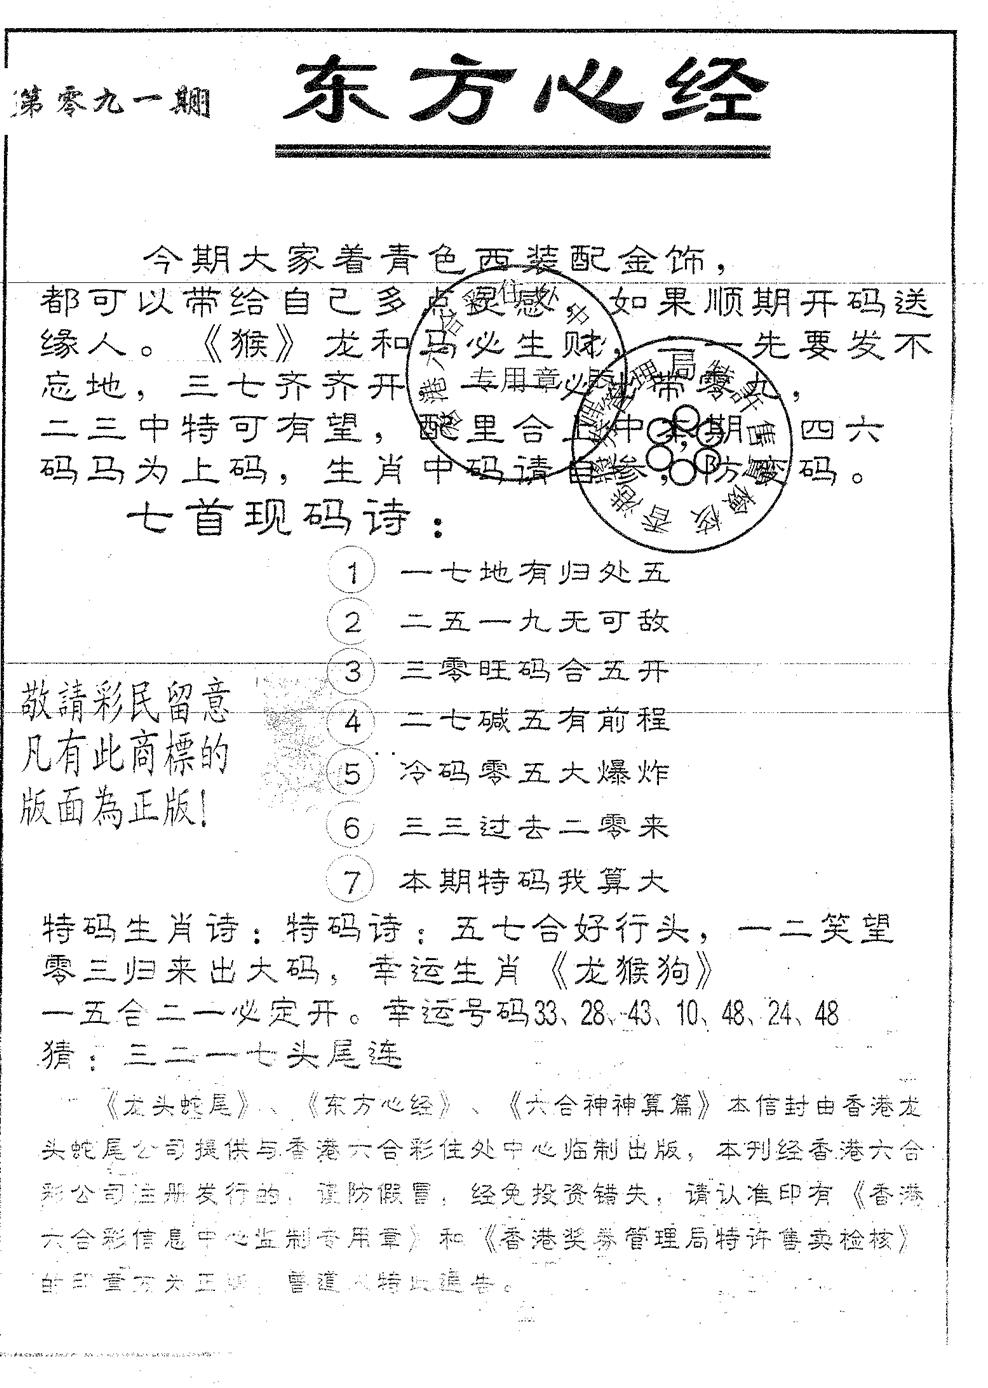 第零九一期
东方心经
今期大家着青色西装配金饰，
都可以带给自己多点灵感，如果顺期开码送
缘人。《猴》龙和马必生财，一一先要发不
忘地，三七齐齐开，一一必出带零九，
二三中特可有望，配里合上中本期，四六
码马为上码，生肖中码请自参，防 码。
七首现码诗：
① 一七地有归处五
② 二五一九无可敌
③ 三零旺码合五开
④ 二七碱五有前程
⑤ 冷码零五大爆炸
⑥ 三三过去二零来
⑦ 本期特码我算大
敬請彩民留意
凡有此商標的
版面為正版！
特码生肖诗：特码诗：五七合好行头，一二笑望
零三归来出大码，幸运生肖《龙猴狗》
一五合二一必定开。幸运号码33、28、43、10、48、24、48
猜：三二一七头尾连
《龙头蛇尾》、《东方心经》、《六合神神算篇》本信封由香港龙
头蛇尾公司提供与香港六合彩住处中心临制出版，本刊经香港六合
彩公司注册发行的，谨防假冒，经免投资错失，请认准印有《香港
六合彩信息中心监制专用章》和《香港奖券管理局特许售卖检核》
的印章方为正版，曾道人特此通告。
专用章
香港奖券管理局特許售賣檢核